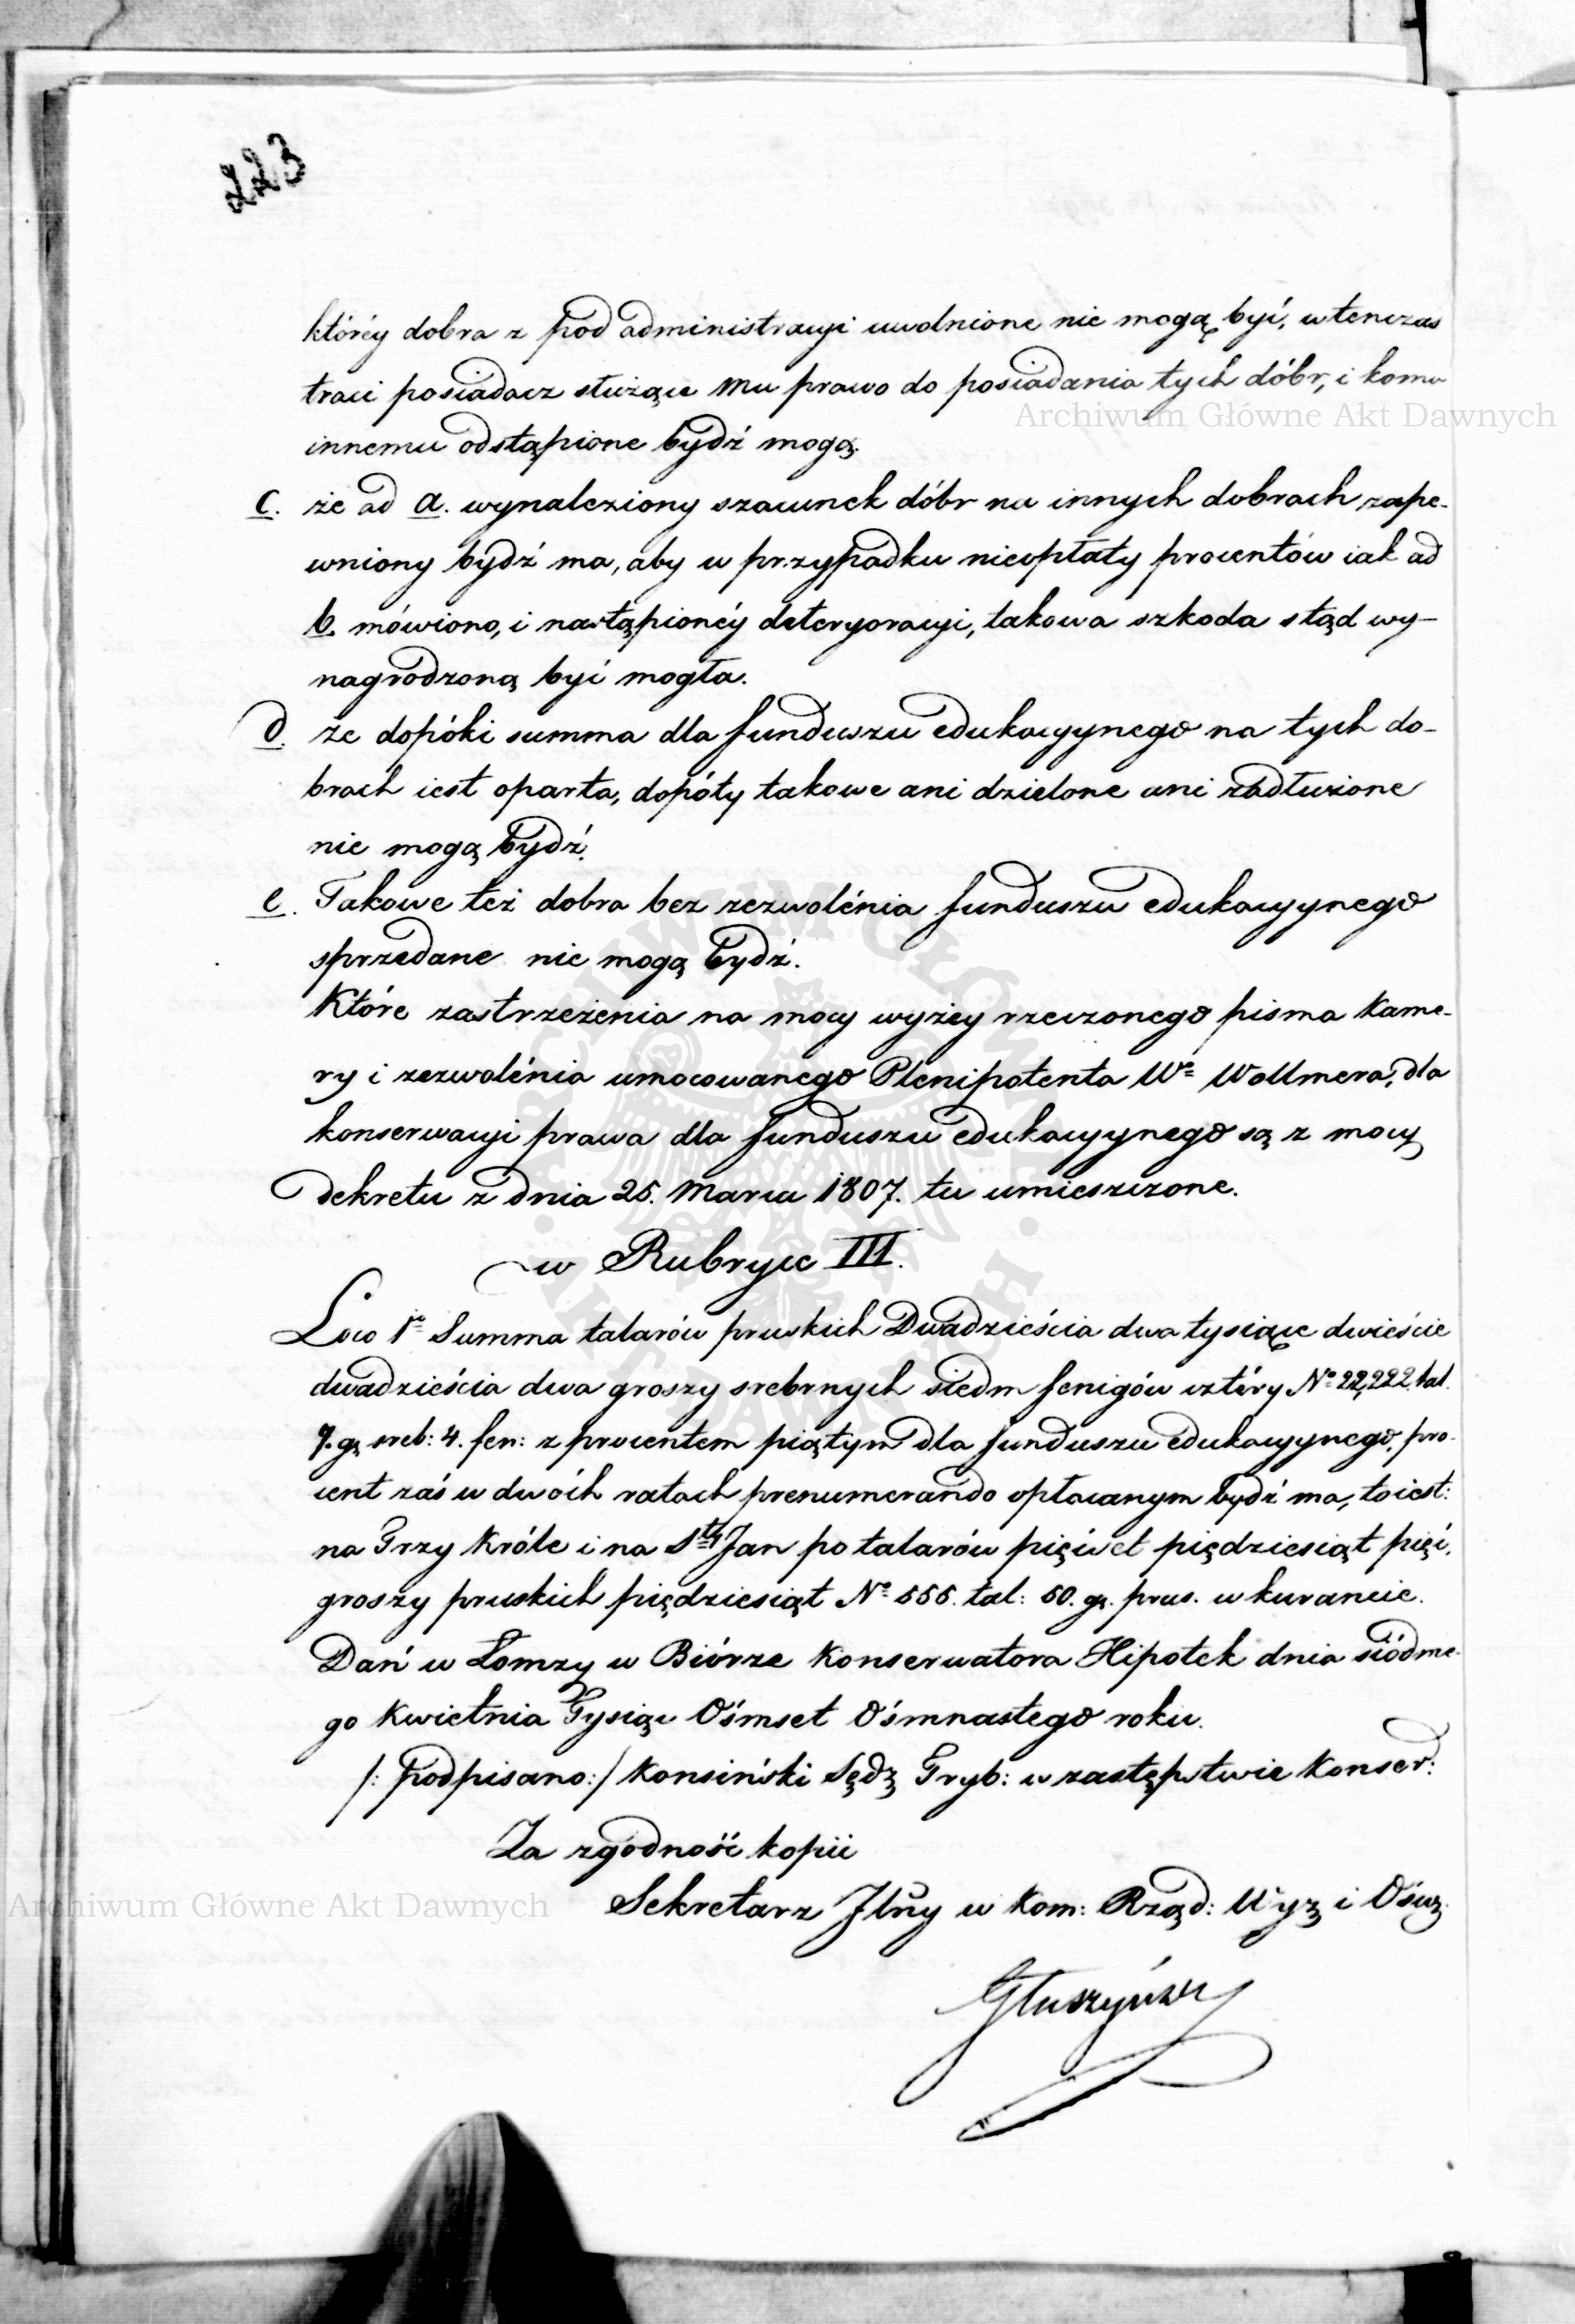 223
któréy dobra z pod administracyi uwolnione nie mogą być, wtenczas
traci posiadacz służące mu prawo do posiadania tych dóbr, i komu
Archiwum Główne Akt Dawnych
innemu odstąpione bydź mogą.
c. że ad a. wynaleziony szacunek dóbr na innych dobrach zape-
wniony bydź ma, aby w przypadku nieopłaty procentów iak ad
b. mówiono, i nastąpionéy deteryoracyi, takowa szkoda stąd wy-
nagrodzoną być mogła.
d. że dopóki summa dla funduszu edukacyynego na tych do-
brach iest oparta, dopóty takowe ani dzielone ani zadłużone
nie mogą bydź.
e. Takowe też dobra bez zezwolénia funduszu edukacyynego
sprzedane nie mogą bydź.
Które zastrzeżenia na mocy wyżey rzeczonego pisma Kame-
ry i zezwolénia umocowanego Plenipotenta Wo Wollmera, dla
konserwacyi prawa dla funduszu edukacyynego są z mocy
dekretu z dnia 25. Marca 1807. tu umieszczone.
w Rubryce III.
Loco 1o Summa talarów pruskich Dwadzieścia dwa tysiące dwieście
dwadzieścia dwa groszy srebrnych siedm fenigów cztéry No 22,222. tal.
7. gr sreb: 4. fen: z procentem piątym dla funduszu edukacyynego, pro-
cent zaś w dwóch ratach prenumerando opłacanym bydź ma, to iest:
na Trzy Króle i na Sty Jan po talarów pięćset pięćdziesiąt pięć,
groszy pruskich piędziesiąt No 555. tal: 50. gr. prus. w kurancie.
Dań w Łomży w Biórze Konserwatora Hipotek dnia siódme-
go Kwietnia Tysiąc Ośmset Ośmnastego roku.
/: podpisano:/ Konsiński Sędz Tryb: w zastępstwie Konser:
Za zgodność kopii
Sekretarz Jlny w Kom: Rząd: Wyz i Ośw.
Archiwum Główne Akt Dawnych
Głuszyński